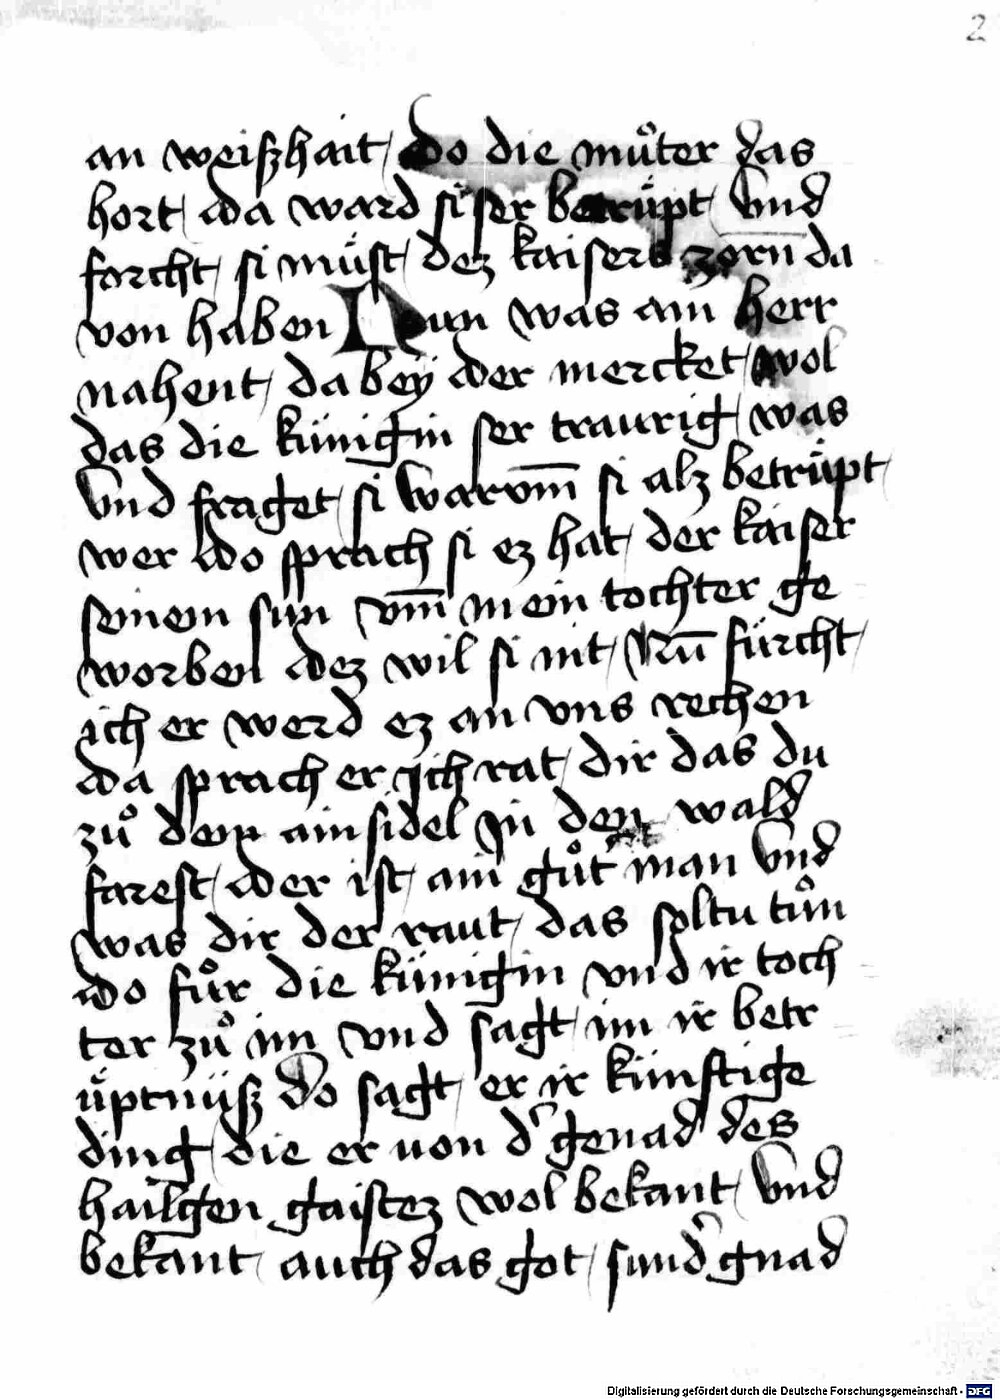 2
an weißhait do die muͦter das
hort da ward si ser betruͤpt Vnd
forcht si muͤst dez kaisers zorn da
von haben Nun was ain herr
nahent da bey der mercket wol
das die künigin ser traurig was
Vnd fraget si warvm̄ si alz betruͤpt
wer do sprach si ez hat der kaiser
seinem sun vm̄ mein tochter ge
worben dez wil si nit Nun̄ fürcht
ich er werd ez an vns rechen
da sprach er Ich rat dir das du
zuͦ dem ainsidel In den wald
farest der ist ain guͦt man Vnd
was dir der raut das soltu tuͦn
do fuͦr die künigin vnd ir toch
ter zuͦ im vnd sagt im ir betr
uͤptnüß Do sagt er ir künftige
ding die er von d' genad des
hailgen gaistez wol bekant Vnd
bekant auch das got sund' gnad
Digitalisierung gefördert durch die Deutsche Forschungsgemeinschaft - DFG